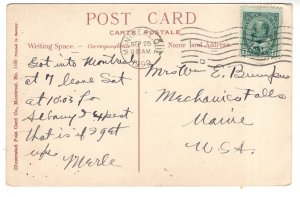 POST CARD
CARTE POSTALE
Writing Space. - Correspondence
Name and Address.
SEP 25
9 30 AM
1909
Got into Montreal
at 7 leave Sat
at 10.05 for
Albany I expect
that is if I get
up.
Merle
Mrs Wm E. Bumpus
Mechanics Falls
Maine
U.S.A.
Illustrated Post Card Co., Montreal.